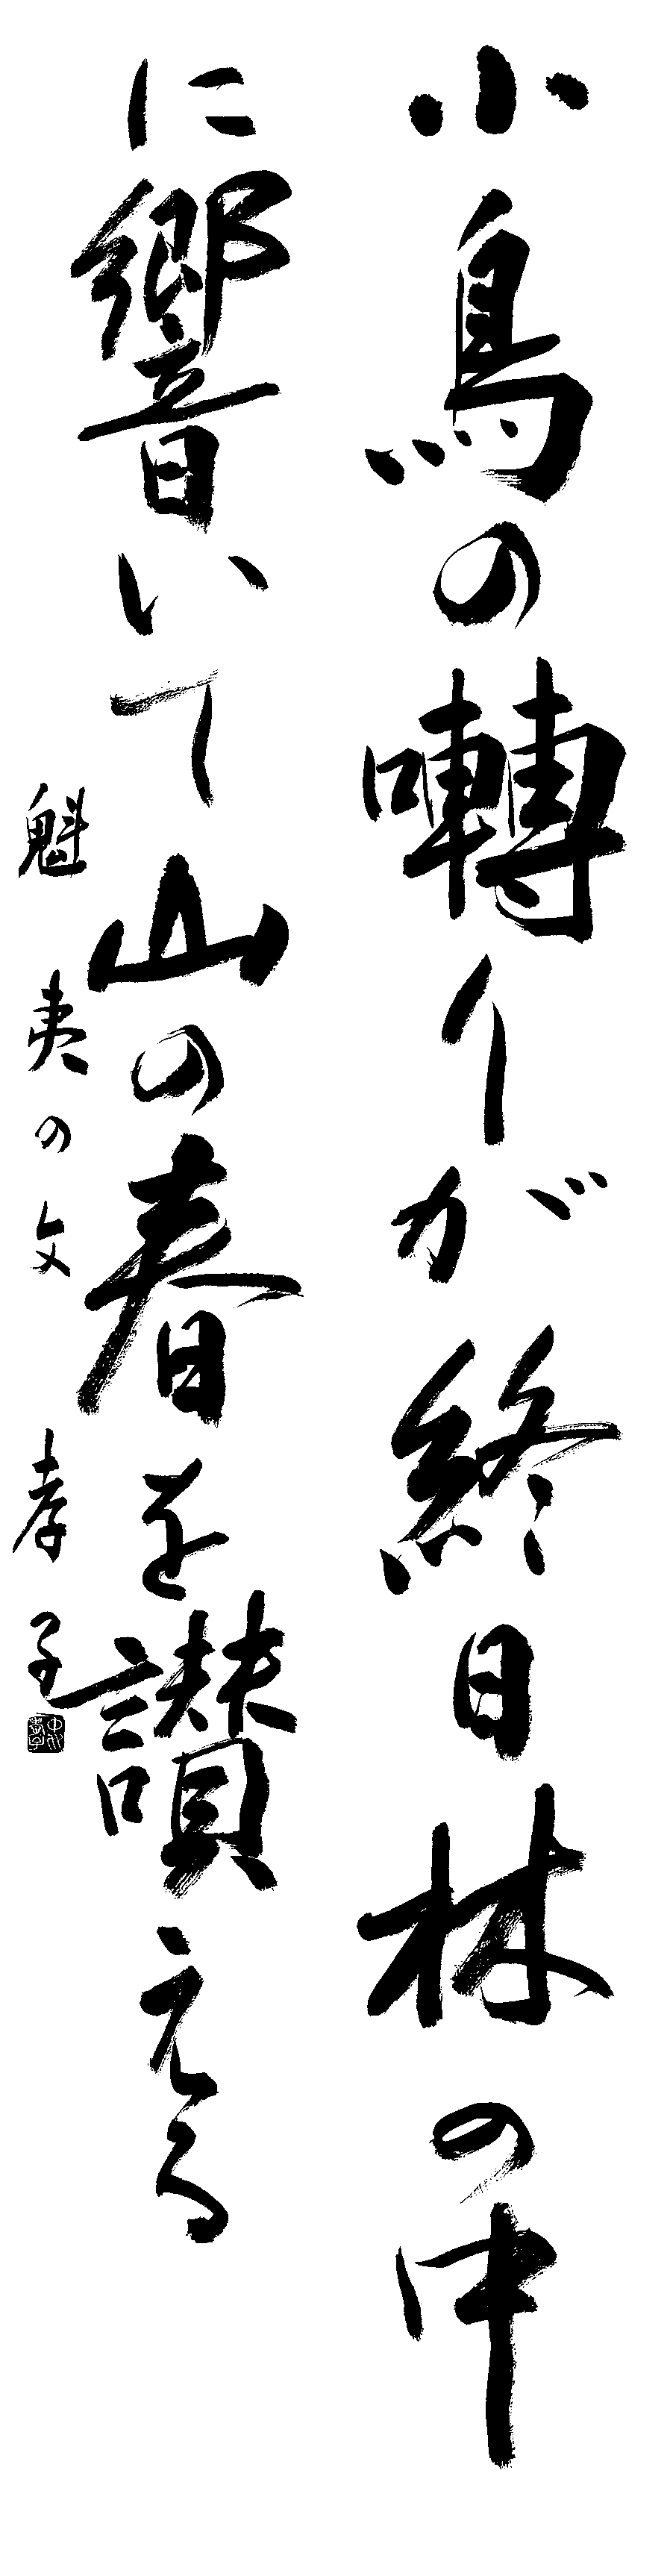 小鳥の囀りが終日林の中
に響いて山の春を讃える
魁夷の文 孝子